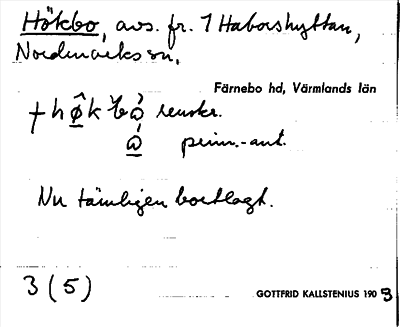 Hökbo, avs. fr. 1 Haborshyttan,
Nordmarks sn.
Färnebo hd, Värmlands län
renskr.
prim.-ant.
Nu tämligen bortlagt.
3 (5)
GOTTFRID KALLSTENIUS 1903